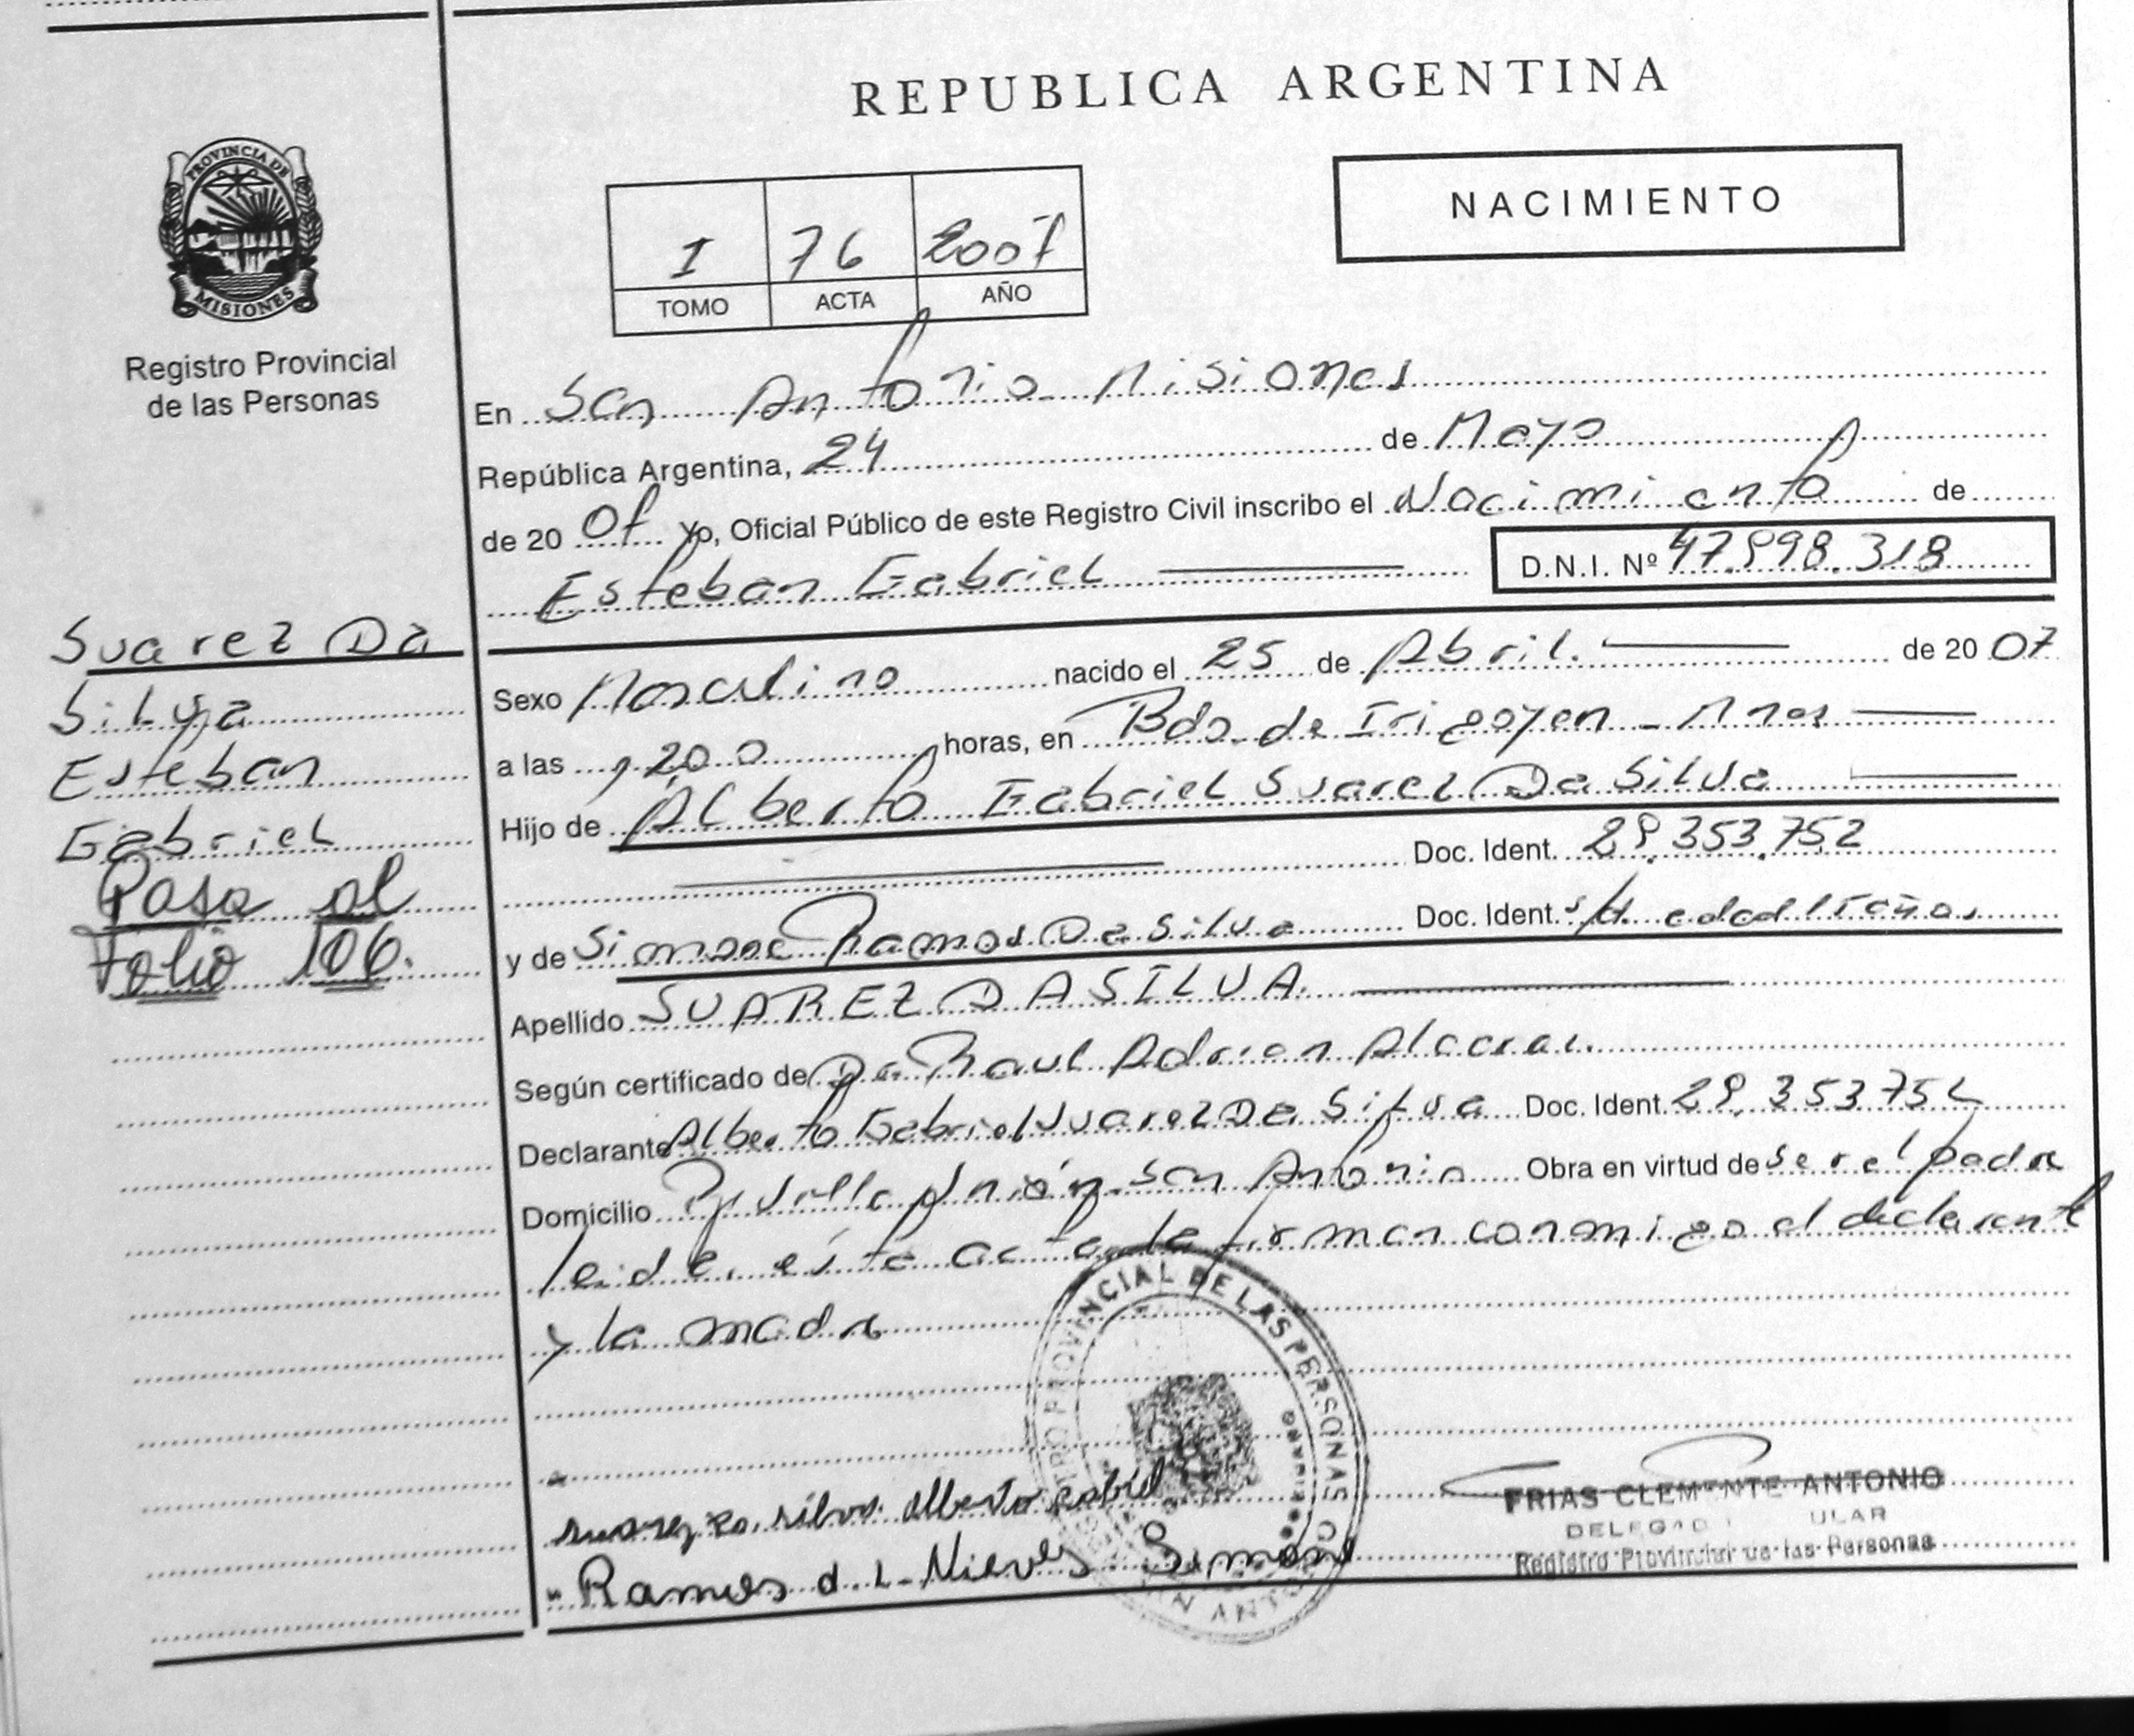 REPUBLICA ARGENTINA
NACIMIENTO
PROVINCIA DE
MISIONES
Registro Provincial
de las Personas
I 76 2007
TOMO ACTA AÑO
En San Antonio Misiones
República Argentina, 24 de Mayo
de 20 07 Yo, Oficial Público de este Registro Civil inscribo el Nacimiento de
Esteban Gabriel D.N.I. Nº 47.898.318
Suarez Da
Silva
Esteban
Gabriel
Pasa al
Folio 106.
Sexo Masculino nacido el 25 de Abril. de 20 07
a las horas, en Bdo. de Irigoyen - Mnes
Hijo de Alberto Gabriel Suarez Da Silva
Doc. Ident. 29.353.752
y de Simone Ramos Da Silva Doc. Ident. edad años
Apellido SUAREZ DA SILVA.
Según certificado de Dr Raul Adrian
Declarante Alberto Gabriel Suarez Da Silva Doc. Ident. 29.353752
Domicilio Unión San Antonio Obra en virtud de ser el padre
leida esta acta la firman conmigo el declarante
y la madre
PROVINCIAL DE LAS PERSONAS
suarez da silva alberto gabriel
Ramos d. L. Nieves Simone
FRIAS CLEMENTE ANTONIO
Registro Provincial de las Personas